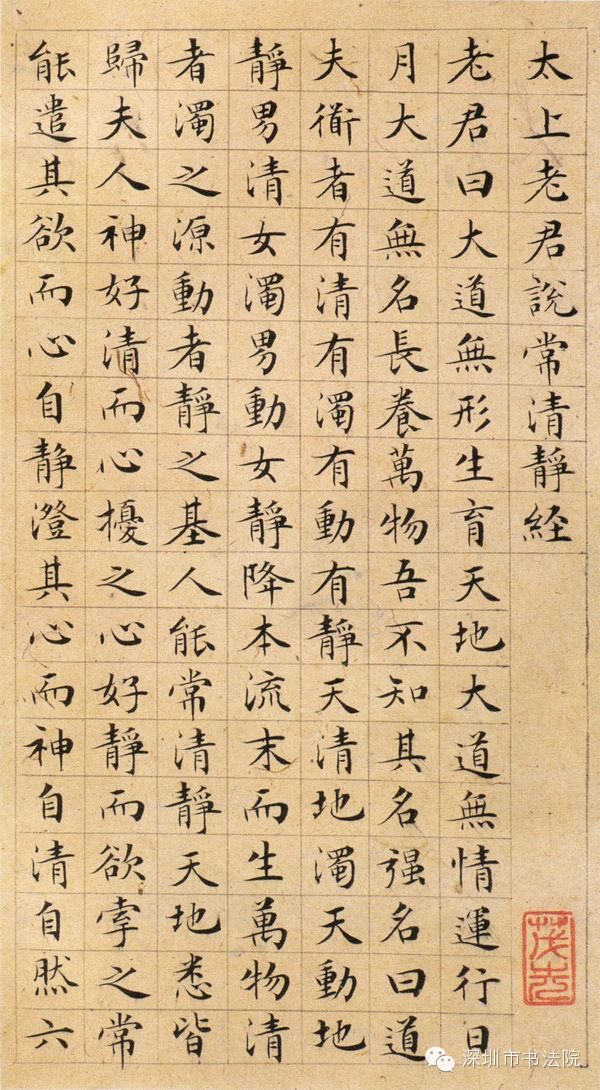 太上老君說常清靜経
老君曰大道無形生育天地大道無情運行日
月大道無名長養萬物吾不知其名强名曰道
夫衜者有清有濁有動有靜天清地濁天動地
靜男清女濁男動女靜降本流末而生萬物清
者濁之源動者靜之基人能常清靜天地悉皆
歸夫人神好清而心擾之心好靜而欲牽之常
能遣其欲而心自静澄其心而神自清自然六
深圳市书法院